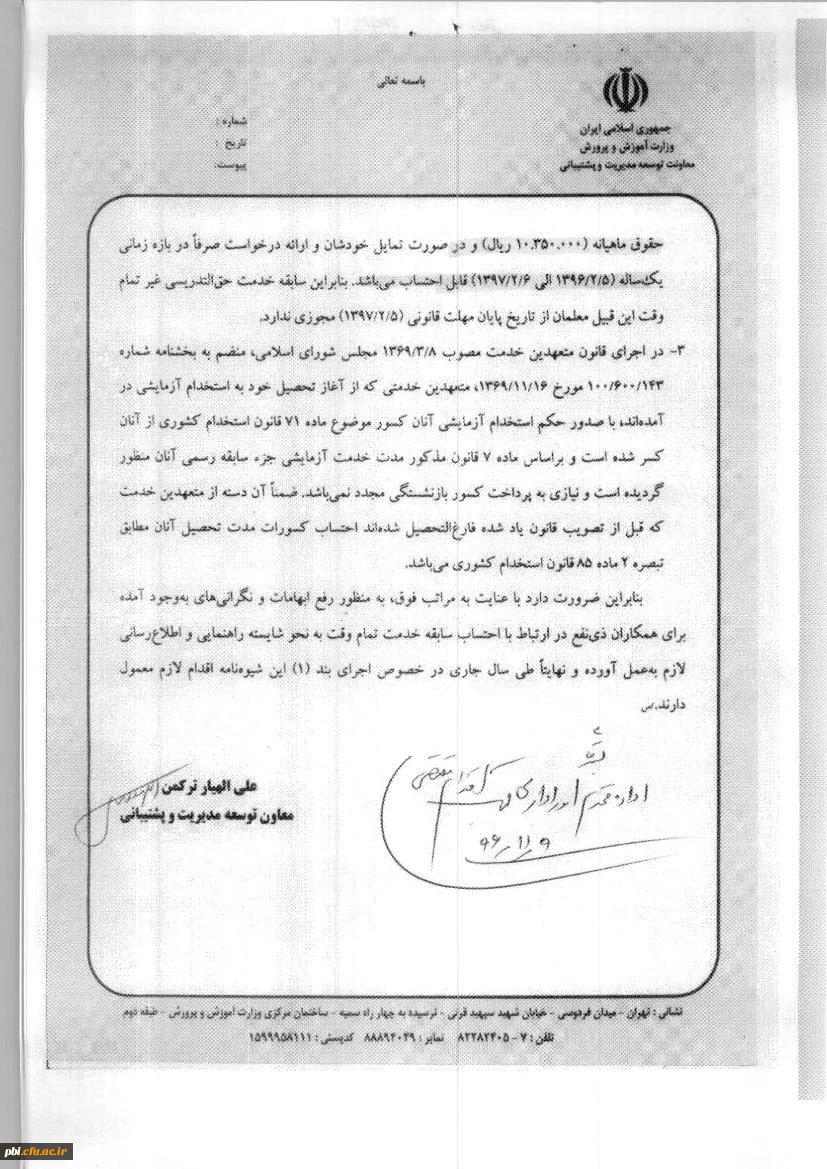 باسمه تعالی
جمهوری اسلامی ایران
وزارت آموزش و پرورش
معاونت توسعه مدیریت و پشتیبانی
شماره :
تاریخ :
پیوست:
حقوق ماهیانه (۱۰.۳۵۰.۰۰۰ ریال) و در صورت تمایل خودشان و ارائه درخواست صرفاً در بازه زمانی
یک‌ساله (۱۳۹۶/۲/۵ الی ۱۳۹۷/۲/۶) قابل احتساب می‌باشد. بنابراین سابقه خدمت حق‌التدریسی غیر تمام
وقت این قبیل معلمان از تاریخ پایان مهلت قانونی (۱۳۹۷/۲/۵) مجوزی ندارد.
۳- در اجرای قانون متعهدین خدمت مصوب ۱۳۶۹/۳/۸ مجلس شورای اسلامی، منضم به بخشنامه شماره
۱۰۰/۶۰۰/۱۴۳ مورخ ۱۳۶۹/۱۱/۱۶، متعهدین خدمتی که از آغاز تحصیل خود به استخدام آزمایشی در
آمده‌اند، با صدور حکم استخدام آزمایشی آنان کسور موضوع ماده ۷۱ قانون استخدام کشوری از آنان
کسر شده است و براساس ماده ۷ قانون مذکور مدت خدمت آزمایشی جزء سابقه رسمی آنان منظور
گردیده است و نیازی به پرداخت کسور بازنشستگی مجدد نمی‌باشد. ضمناً آن دسته از متعهدین خدمت
که قبل از تصویب قانون یاد شده فارغ‌التحصیل شده‌اند احتساب کسورات مدت تحصیل آنان مطابق
تبصره ۲ ماده ۸۵ قانون استخدام کشوری می‌باشد.
بنابراین ضرورت دارد با عنایت به مراتب فوق، به منظور رفع ابهامات و نگرانی‌های به‌وجود آمده
برای همکاران ذی‌نفع در ارتباط با احتساب سابقه خدمت تمام وقت به نحو شایسته راهنمایی و اطلاع‌رسانی
لازم به‌عمل آورده و نهایتاً طی سال جاری در خصوص اجرای بند (۱) این شیوه‌نامه اقدام لازم معمول
دارند.س
اداره محترم امور اداری
۹۶/۱۱/۹
علی الهیار ترکمن
معاون توسعه مدیریت و پشتیبانی
نشانی : تهران – میدان فردوسی – خیابان شهید سپهبد قرنی – نرسیده به چهار راه سمیه – ساختمان مرکزی وزارت آموزش و پرورش – طبقه دوم
تلفن : ۷ – ۸۲۲۸۲۴۰۵ نمابر : ۸۸۸۹۴۰۴۹ کدپستی : ۱۵۹۹۹۵۸۱۱۱
pbi.cfu.ac.ir